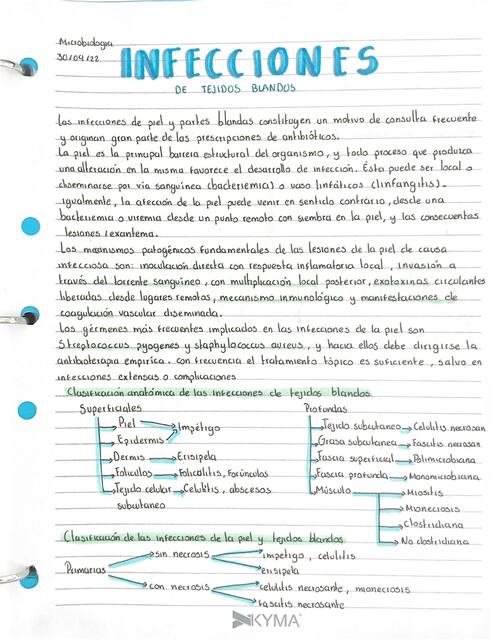 Microbiología
30/04/22
INFECCIONES
DE TEJIDOS BLANDOS
Las infecciones de piel y partes blandas constituyen un motivo de consulta frecuente
y originan gran parte de las prescripciones de antibióticos.
La piel es la principal barrera estructural del organismo, y todo proceso que produzca
una alteración en la misma favorece el desarrollo de infección. Ésta puede ser local o
diseminarse por vía sanguínea (bacteriemia) o vaso linfáticos (linfangitis).
igualmente, la afección de la piel puede venir en sentido contrario, desde una
bacteriemia o viremia desde un punto remoto con siembra en la piel, y las consecuentes
lesiones / exantema.
Los mecanismos patogénicos fundamentales de las lesiones de la piel de causa
infecciosa son: inoculación directa con respuesta inflamatoria local, invasión a
través del torrente sanguíneo, con multiplicación local posterior, exotoxinas circulantes
liberadas desde lugares remotos, mecanismo inmunológico y manifestaciones de
coagulación vascular diseminada.
Los gérmenes más frecuentes implicados en las infecciones de la piel son
Streptococcus pyogenes y staphylococcus aureus, y hacia ellos debe dirigirse la
antibioterapia empírica. con frecuencia el tratamiento tópico es suficiente, salvo en
infecciones extensas o complicaciones
Clasificación anatómica de las infecciones de tejidos blandos
Superficiales
Piel
Epidermis
Impétigo
Dermis Erisipela
Folículos Foliculitis, Forúnculos
Tejido celular Celulitis, abscesos
subcutaneo
Profundas
Tejido subcutaneo Celulitis necrosan
Grasa subcutanea Fascitis necrosan
Fascia superficial Polimicrobiana
Fascia profunda Monomicrobiana
Músculo Miositis
Mionecrosis
Clostridiana
No clostridiana
Clasificación de las infecciones de la piel y tejidos blandos
Primarias
sin necrosis
impetigo, celulitis
erisipela
con necrosis
celulitis necrosante, mionecrosis
fascitis necrosante
KYMA®